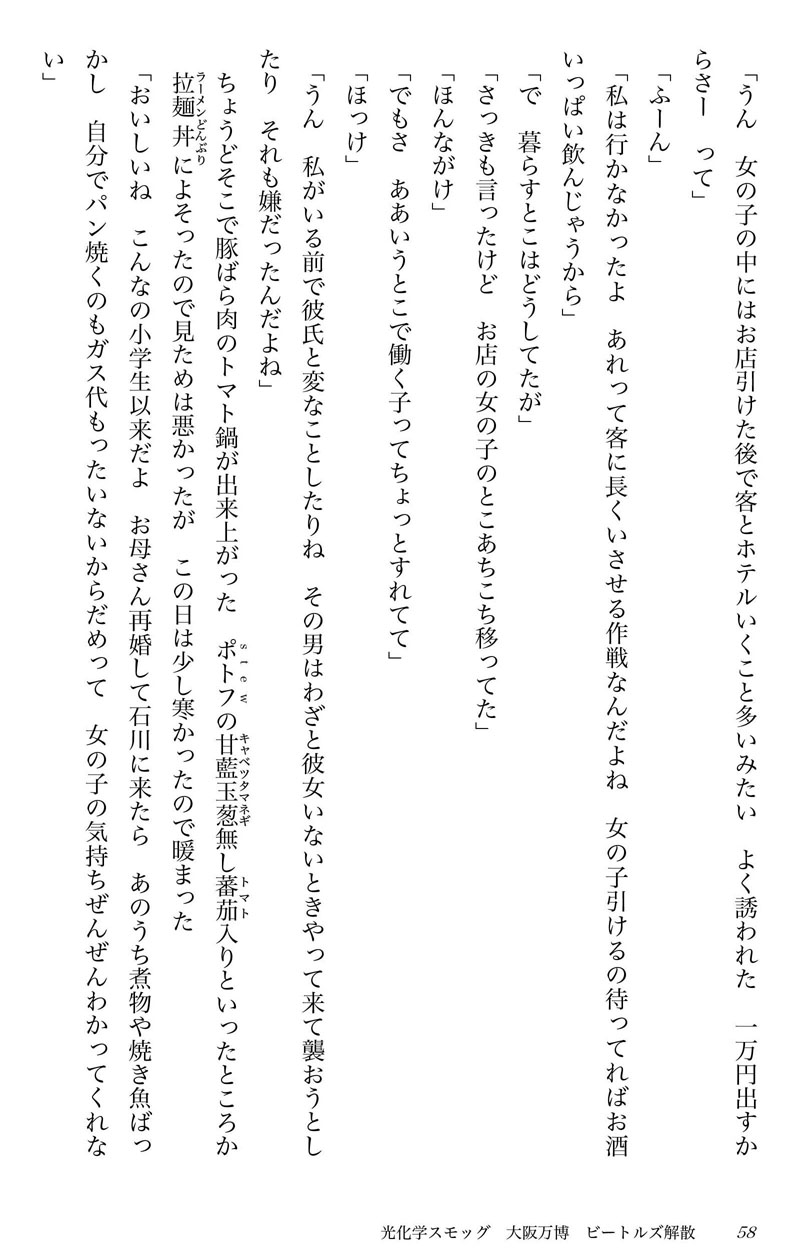 「うん　女の子の中にはお店引けた後で客とホテルいくこと多いみたい　よく誘われた　一万円出すか
らさー　って」
「ふーん」
「私は行かなかったよ　あれって客に長くいさせる作戦なんだよね　女の子引けるの待ってればお酒
いっぱい飲んじゃうから」
「で　暮らすとこはどうしてたが」
「さっきも言ったけど　お店の女の子のとこあちこち移ってた」
「ほんながけ」
「でもさ　ああいうとこで働く子ってちょっとすれてて」
「ほっけ」
「うん　私がいる前で彼氏と変なことしたりね　その男はわざと彼女いないときやって来て襲おうとし
たり　それも嫌だったんだよね」
ちょうどそこで豚ばら肉のトマト鍋が出来上がった　ポトフの甘藍玉葱無し蕃茄入りといったところか
stew キャベツタマネギ トマト
拉麺丼によそったので見ためは悪かったが　この日は少し寒かったので暖まった
ラーメンどんぶり
「おいしいね　こんなの小学生以来だよ　お母さん再婚して石川に来たら　あのうち煮物や焼き魚ばっ
かし　自分でパン焼くのもガス代もったいないからだめって　女の子の気持ちぜんぜんわかってくれな
い」
光化学スモッグ　大阪万博　ビートルズ解散　58